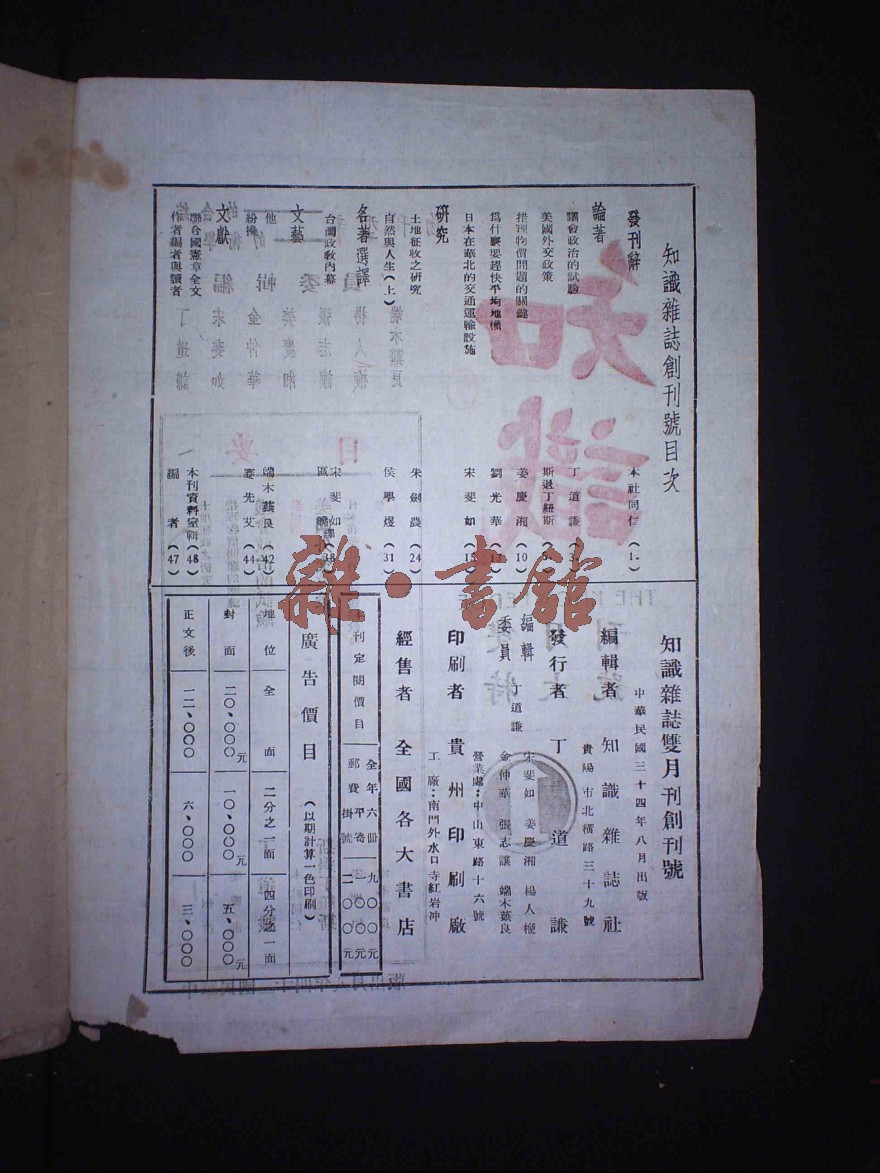 知識雜誌創刊號目次
發刊辭 本社同仁（1）
論著
議會政治的試驗 丁道謙
美國外交政策 斯退丁紐斯
措理物價問題的關鍵 姜慶湘（10）
爲什麼要趕快平均地權 劉光華
日本在華北的交通運輸設施 宋斐如
研究
土地征收之研究 朱劍農（24）
自然與人生（上） 侯學煜（31）
名著選譯
台灣政教內幕 宋斐如
文藝
他 端木蕻良（42）
紛擾 蹇先艾（44）
文獻
聯合國憲章全文 本刊資料室輯（48）
作者編者與讀者 編者（47）
知識雜誌雙月刊創刊號
中華民國三十四年八月出版
編輯者 知識雜誌社
貴陽市北橫路三十九號
發行者 丁道謙
編輯委員 丁道謙 宋斐如 姜慶湘 楊人楩 金仲華 張志讓 端木蕻良
印刷者 貴州印刷廠
營業處：中山東路十六號
工廠：南門外水口寺紅岩冲
經售者 全國各大書店
本刊定閱價目
全年六冊 九〇〇元
郵費 平寄 一〇〇元
掛號 二〇〇元
廣告價目（以期計算一色印刷）
地位 全面 二分之一面 四分之一面
封面 二〇、〇〇〇元 一〇、〇〇〇元 五、〇〇〇元
正文後 一二、〇〇〇 六、〇〇〇 三、〇〇〇
雜·書館